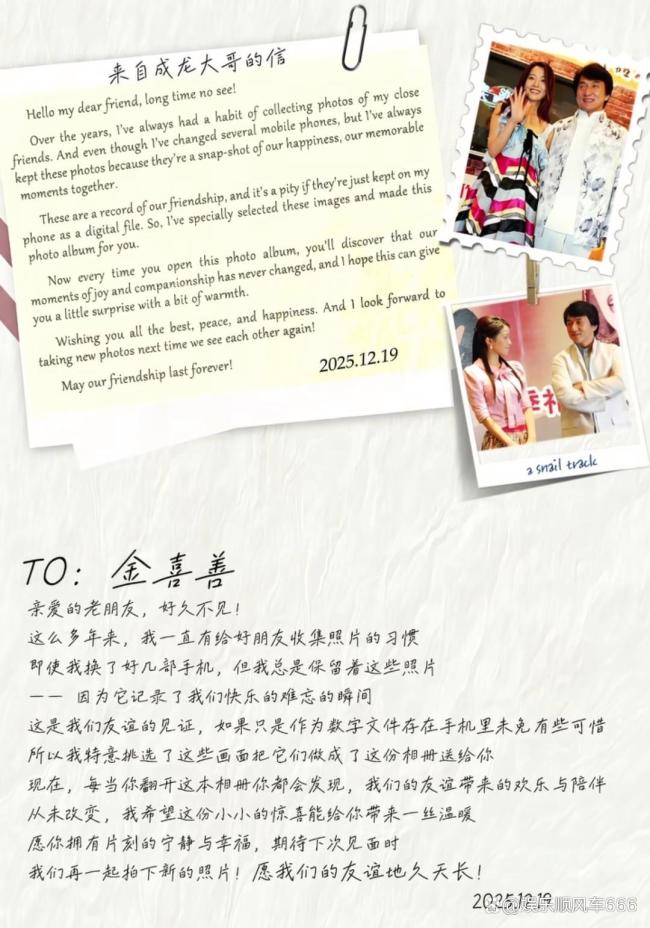 来自成龙大哥的信
Hello my dear friend, long time no see!
Over the years, I've always had a habit of collecting photos of my close
friends. And even though I've changed several mobile phones, but I've always
kept these photos because they're a snap-shot of our happiness, our memorable
moments together.
These are a record of our friendship, and it's a pity if they're just kept on my
phone as a digital file. So, I've specially selected these images and made this
photo album for you.
Now every time you open this photo album, you'll discover that our
moments of joy and companionship has never changed, and I hope this can give
you a little surprise with a bit of warmth.
Wishing you all the best, peace, and happiness. And I look forward to
taking new photos next time we see each other again!
May our friendship last forever!
2025.12.19
a snail track
TO: 金喜善
亲爱的老朋友，好久不见！
这么多年来，我一直有给好朋友收集照片的习惯
即使我换了好几部手机，但我总是保留着这些照片
—— 因为它记录了我们快乐的难忘的瞬间
这是我们友谊的见证，如果只是作为数字文件存在手机里未免有些可惜
所以我特意挑选了这些画面把它们做成了这份相册送给你
现在，每当你翻开这本相册你都会发现，我们的友谊带来的欢乐与陪伴
从未改变，我希望这份小小的惊喜能给你带来一丝温暖
愿你拥有片刻的宁静与幸福，期待下次见面时
我们再一起拍下新的照片！愿我们的友谊地久天长！
2025.12.19
娱乐顺风车666